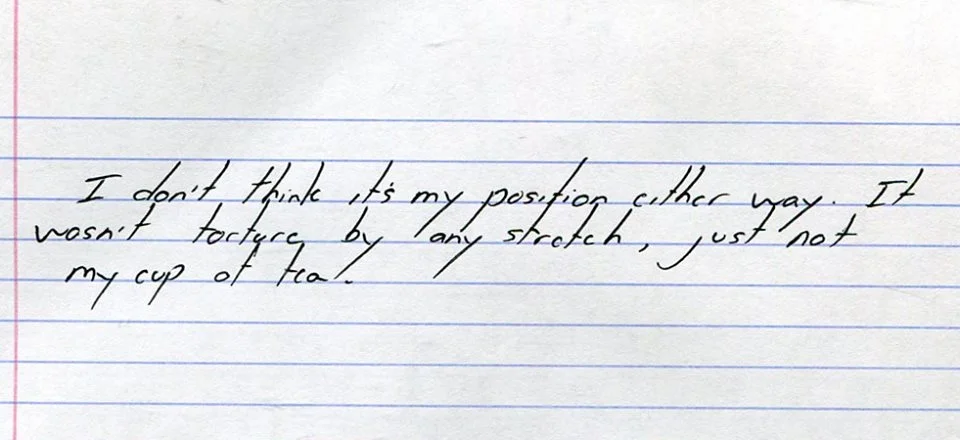 I don't think it's my position either way. It
wasn't torture by any stretch, just not
my cup of tea.